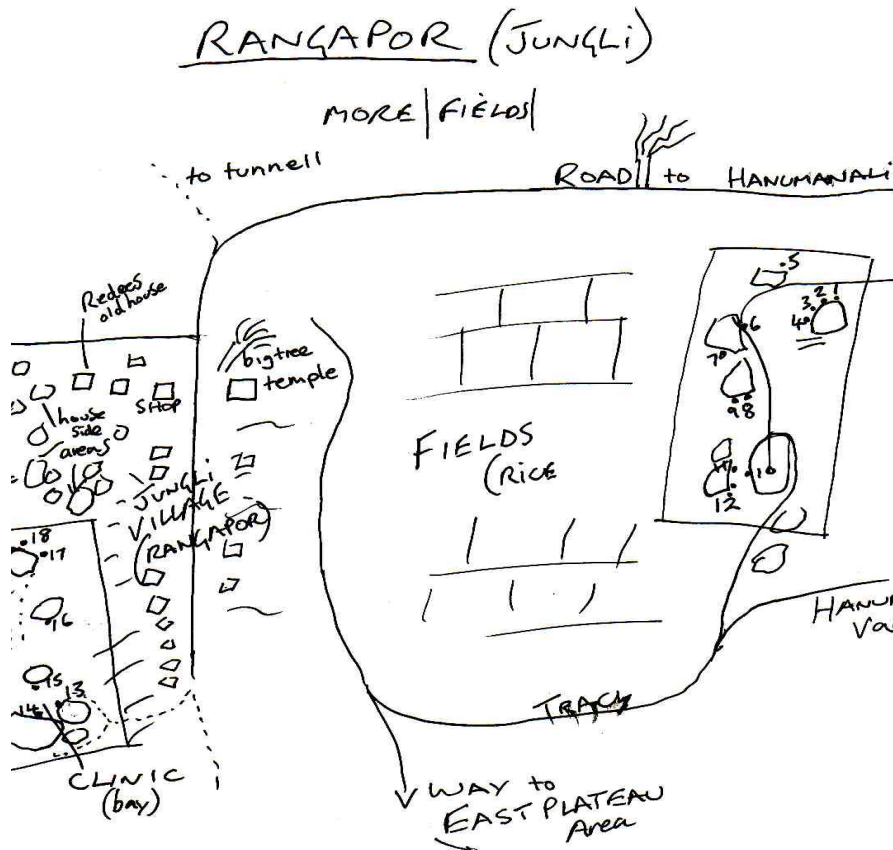 RANGAPOR (JUNGLi)
MORE FIELDS
to tunnell
ROAD to HANUMANALi
Redges
old house
big tree
temple
SHOP
house
side
areas
JUNGLi
VILLAGE
(RANGAPOR)
FIELDS
(RICE
5
3 2 1
4
6
7
98
11 10
12
18
17
16
15
14 13
CLINIC
(bay)
TRACK
WAY to
EAST PLATEAU
Area
HANUM
Va